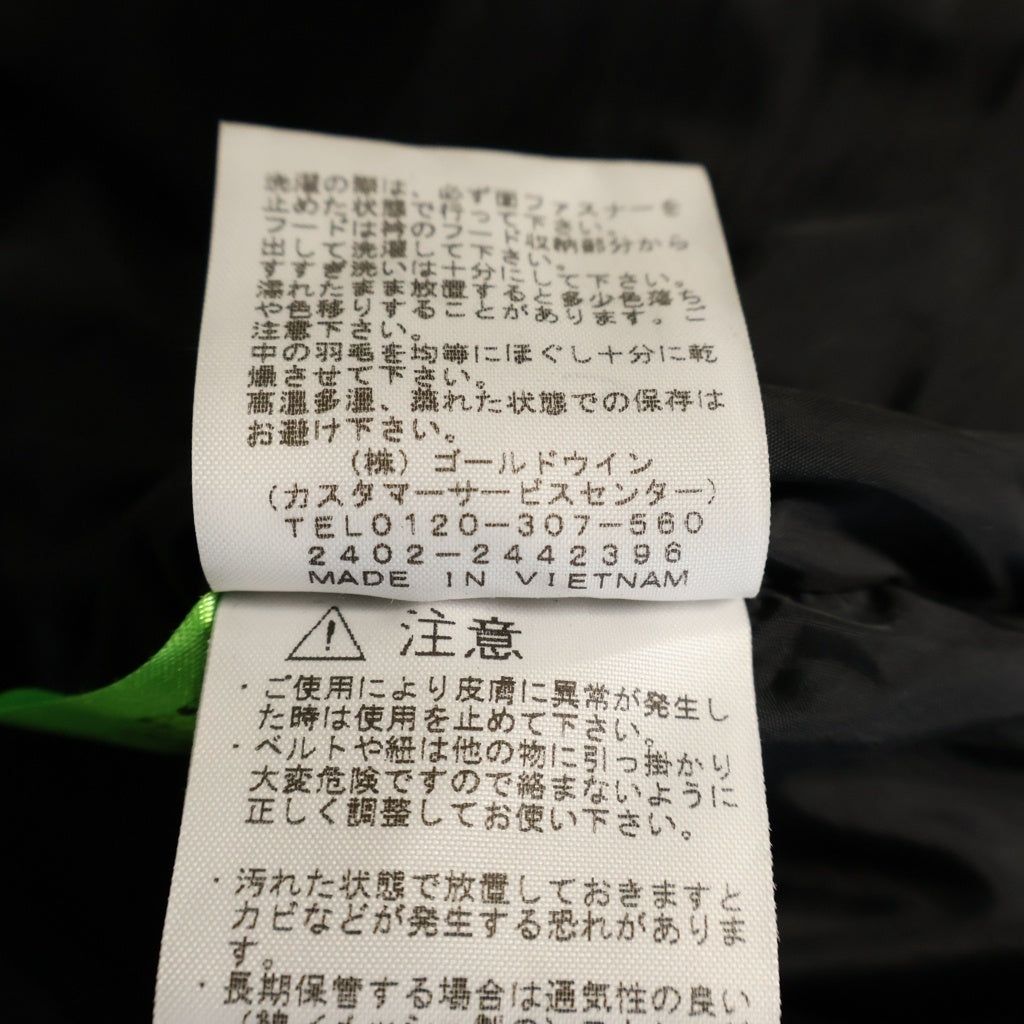 洗濯の際は、必ず面ファスナーを
止めた状態で行って下さい。
フードは衿の フード収納部分から
出して洗濯して下さい。
すすぎ洗いは十分にして下さい。
濡れたまま放置すると多少色落ち
や色移りすることがあります。ご
注意下さい。
中の羽毛を均等にほぐし十分に乾
燥させて下さい。
高温多湿、蒸れた状態での保存は
お避け下さい。
(株)ゴールドウイン
(カスタマーサービスセンター)
TEL0120-307-560
2402-2442396
MADE IN VIETNAM
注意
・ご使用により皮膚に異常が発生し
た時は使用を止めて下さい。
・ベルトや紐は他の物に引っ掛かり
大変危険ですので絡まないように
正しく調整してお使い下さい。
・汚れた状態で放置しておきますと
カビなどが発生する恐れがありま
す。
・長期保管する場合は通気性の良い